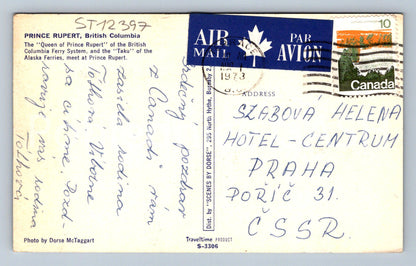 ST 12397
PRINCE RUPERT, British Columbia
The "Queen of Prince Rupert" of the British
Columbia Ferry System, and the "Taku" of the
Alaska Ferries, meet at Prince Rupert.
AIR PAR
MAIL AVION
1973
10
Canada
ADDRESS
Srdečný pozdrav
z Canady Vám
zasílá rodina
ravuje vás rodina
Dist. by "SCENES BY DORSE", 295 North Hythe, Burnaby 2,
SZABOVÁ HELENA
HOTEL - CENTRUM
PRAHA
POŘIČ 31.
ČSSR.
Photo by Dorse McTaggart
Traveltime PRODUCT
S-3306